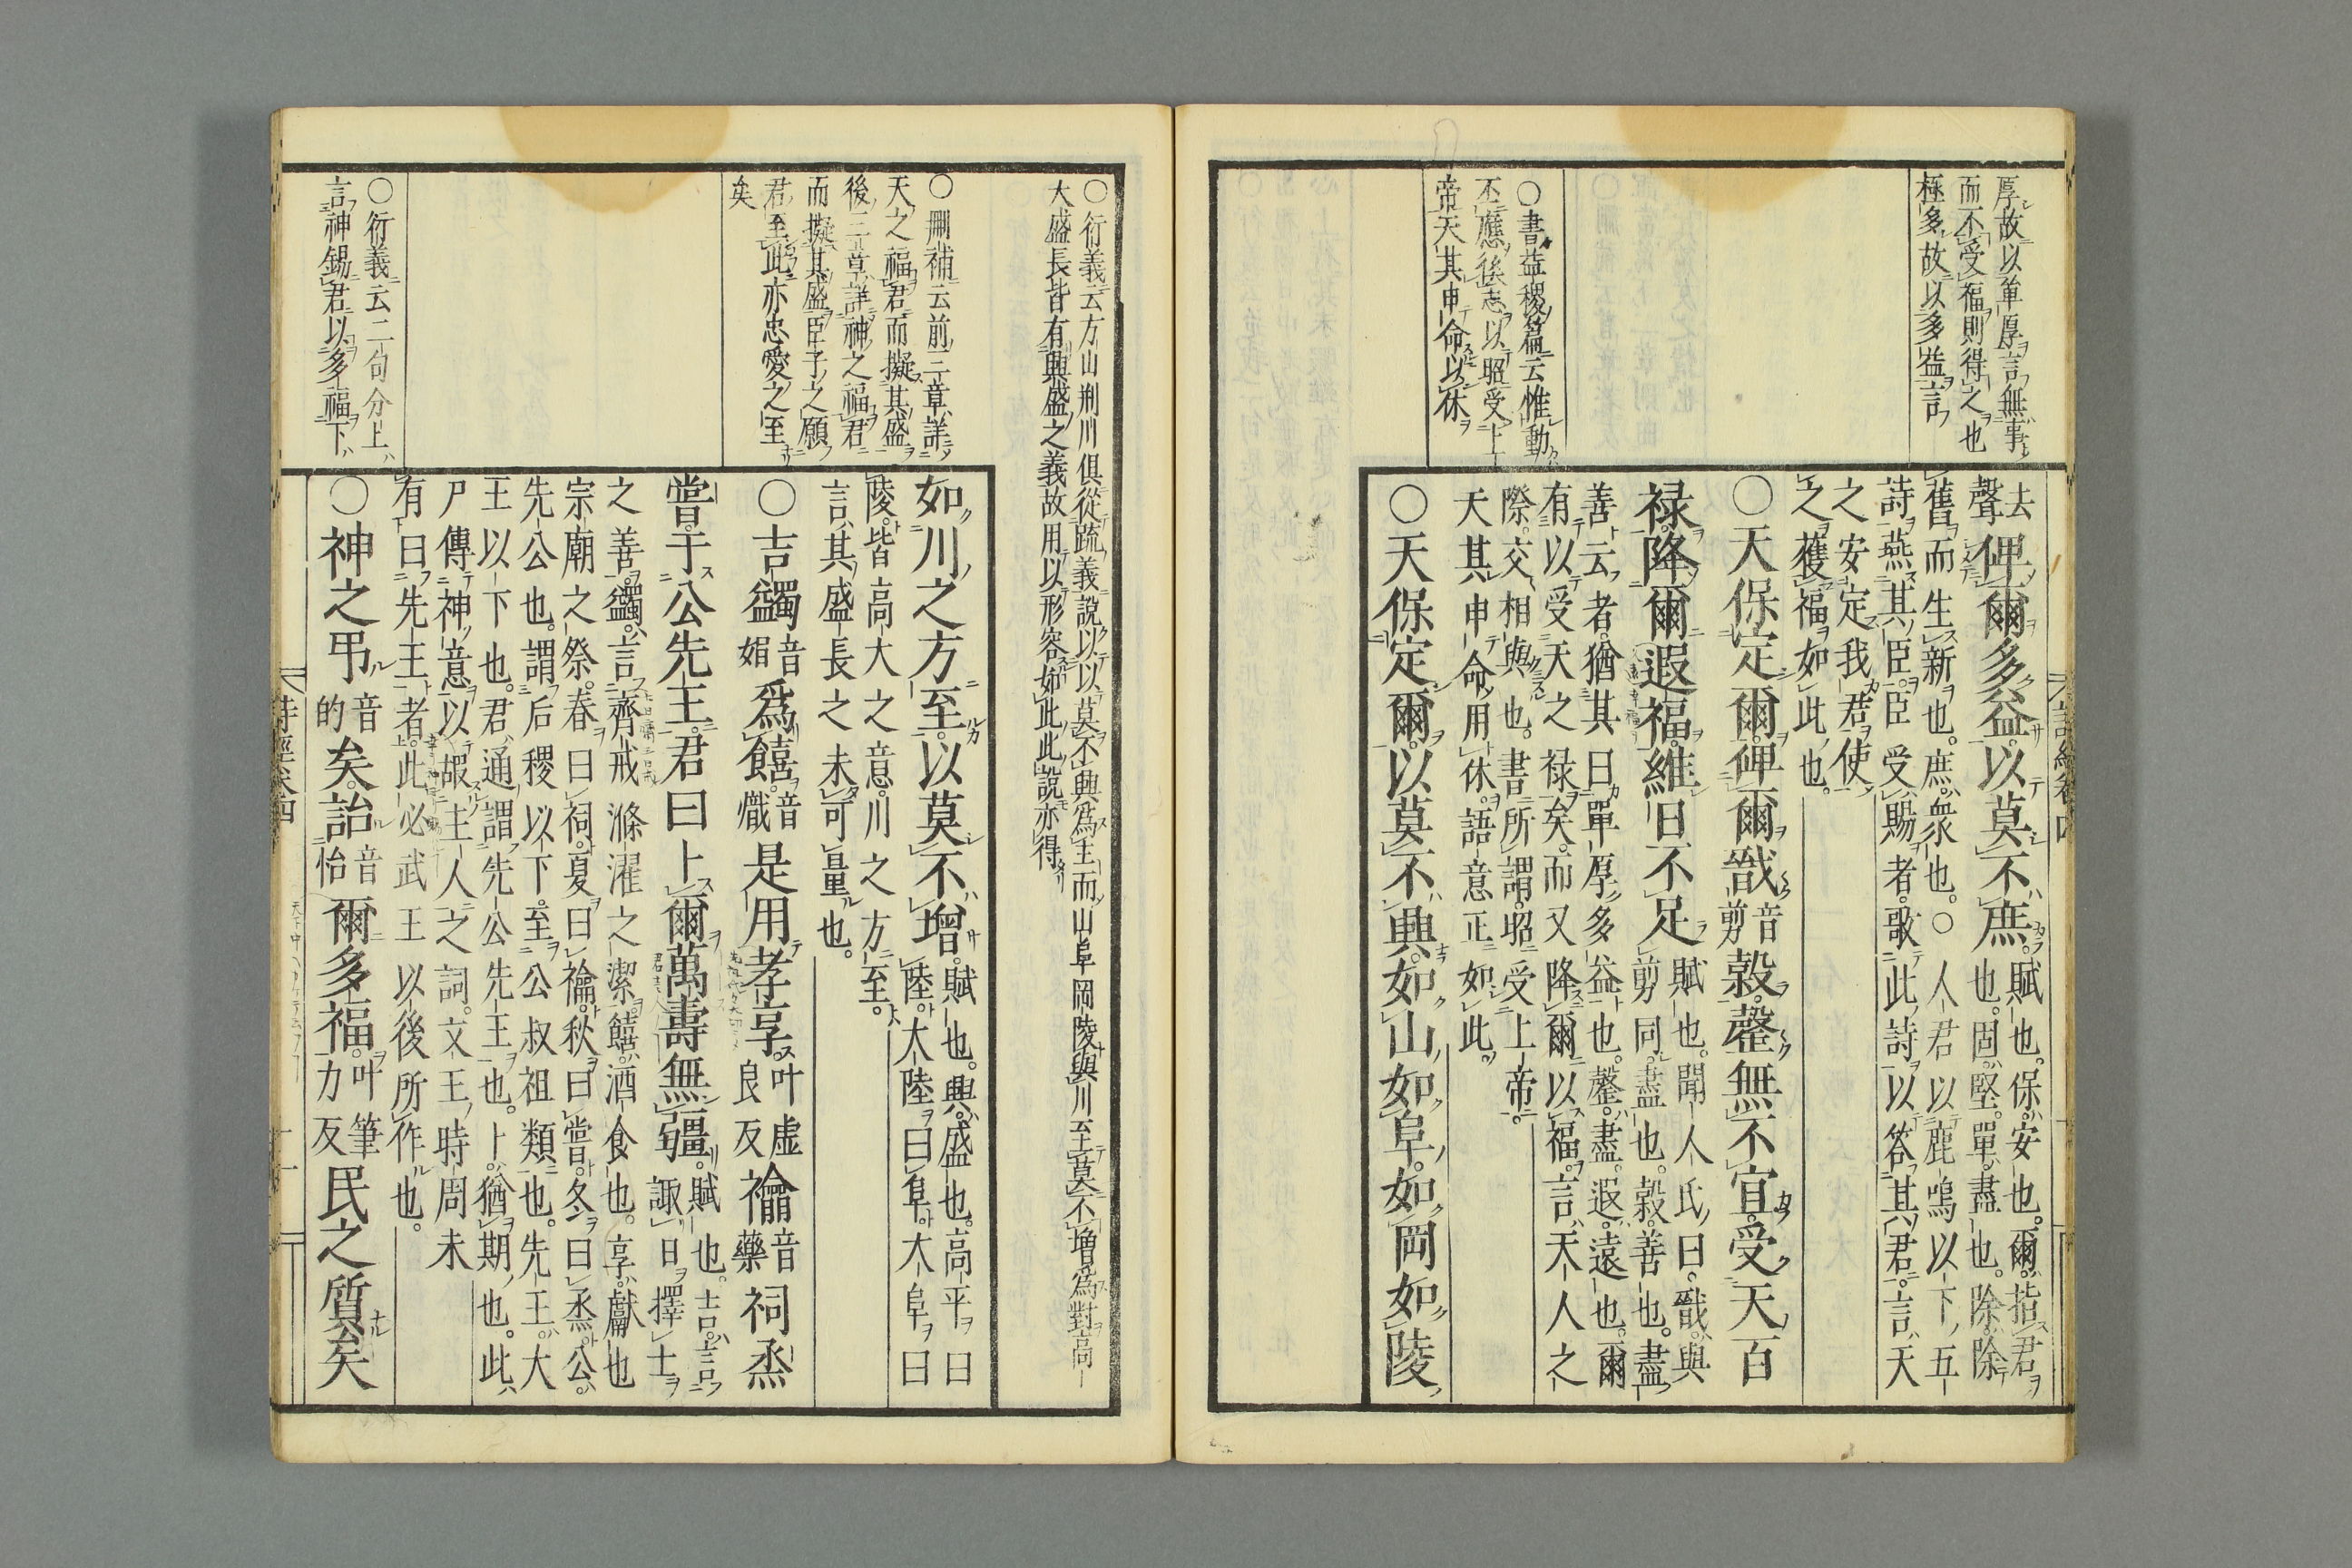 厚故以單厚言無事
而不受福則得之也
極多故以多益言
○書益稷篇云惟動
丕應徯志以昭受上
帝天其申命以休
去聲俾爾多益以莫不庶賦也保安也爾指君
也固堅單盡也除除
舊而生新也庶衆也○人君以鹿鳴以下五
詩燕其臣臣受賜者歌此詩以答其君言天
之安定我君使
之獲福如此也
○天保定爾俾爾戩音剪穀罄無不宜受天百
祿降爾遐福維日不足賦也聞人氏曰戩與
剪同盡也穀善也盡
善云者猶其曰單厚多益也罄盡遐遠也爾
有以受天之祿矣而又降爾以福言天人之
際交相與也書所謂昭受上帝
天其申命用休語意正如此
○天保定爾以莫不興如山如阜如岡如陵
詩經卷四
○衍義云方山荆川俱從疏義說以以莫不興爲主而山阜岡陵與川至莫不增爲對高
大盛長皆有興盛之義故用以形容如此此說亦得
○刪補云前三章詳
天之福君而擬其盛
後三章詳神之福君
而擬其盛臣子之願
君至此亦忠愛之至
矣
○衍義云二句分上
言神錫君以多福下
如川之方至以莫不增賦也興盛也高平曰
陸大陸曰阜大阜曰
陵皆高大之意川之方至
言其盛長之未可量也
○吉蠲音娟爲饎音熾是用孝享叶虛良反禴音藥祠烝
嘗于公先王君曰卜爾萬壽無疆賦也吉言
諏日擇士
之善蠲言齊戒滌濯之潔饎酒食也享獻也
宗廟之祭春曰祠夏曰禴秋曰嘗冬曰烝公
先公也謂后稷以下至公叔祖類也先王大
王以下也君通謂先公先王也卜猶期也此
尸傳神意以嘏主人之詞文王時周未
有曰先王者此必武王以後所作也
○神之弔音的矣詒音怡爾多福叶筆力反民之質矣
詩經卷四
十一